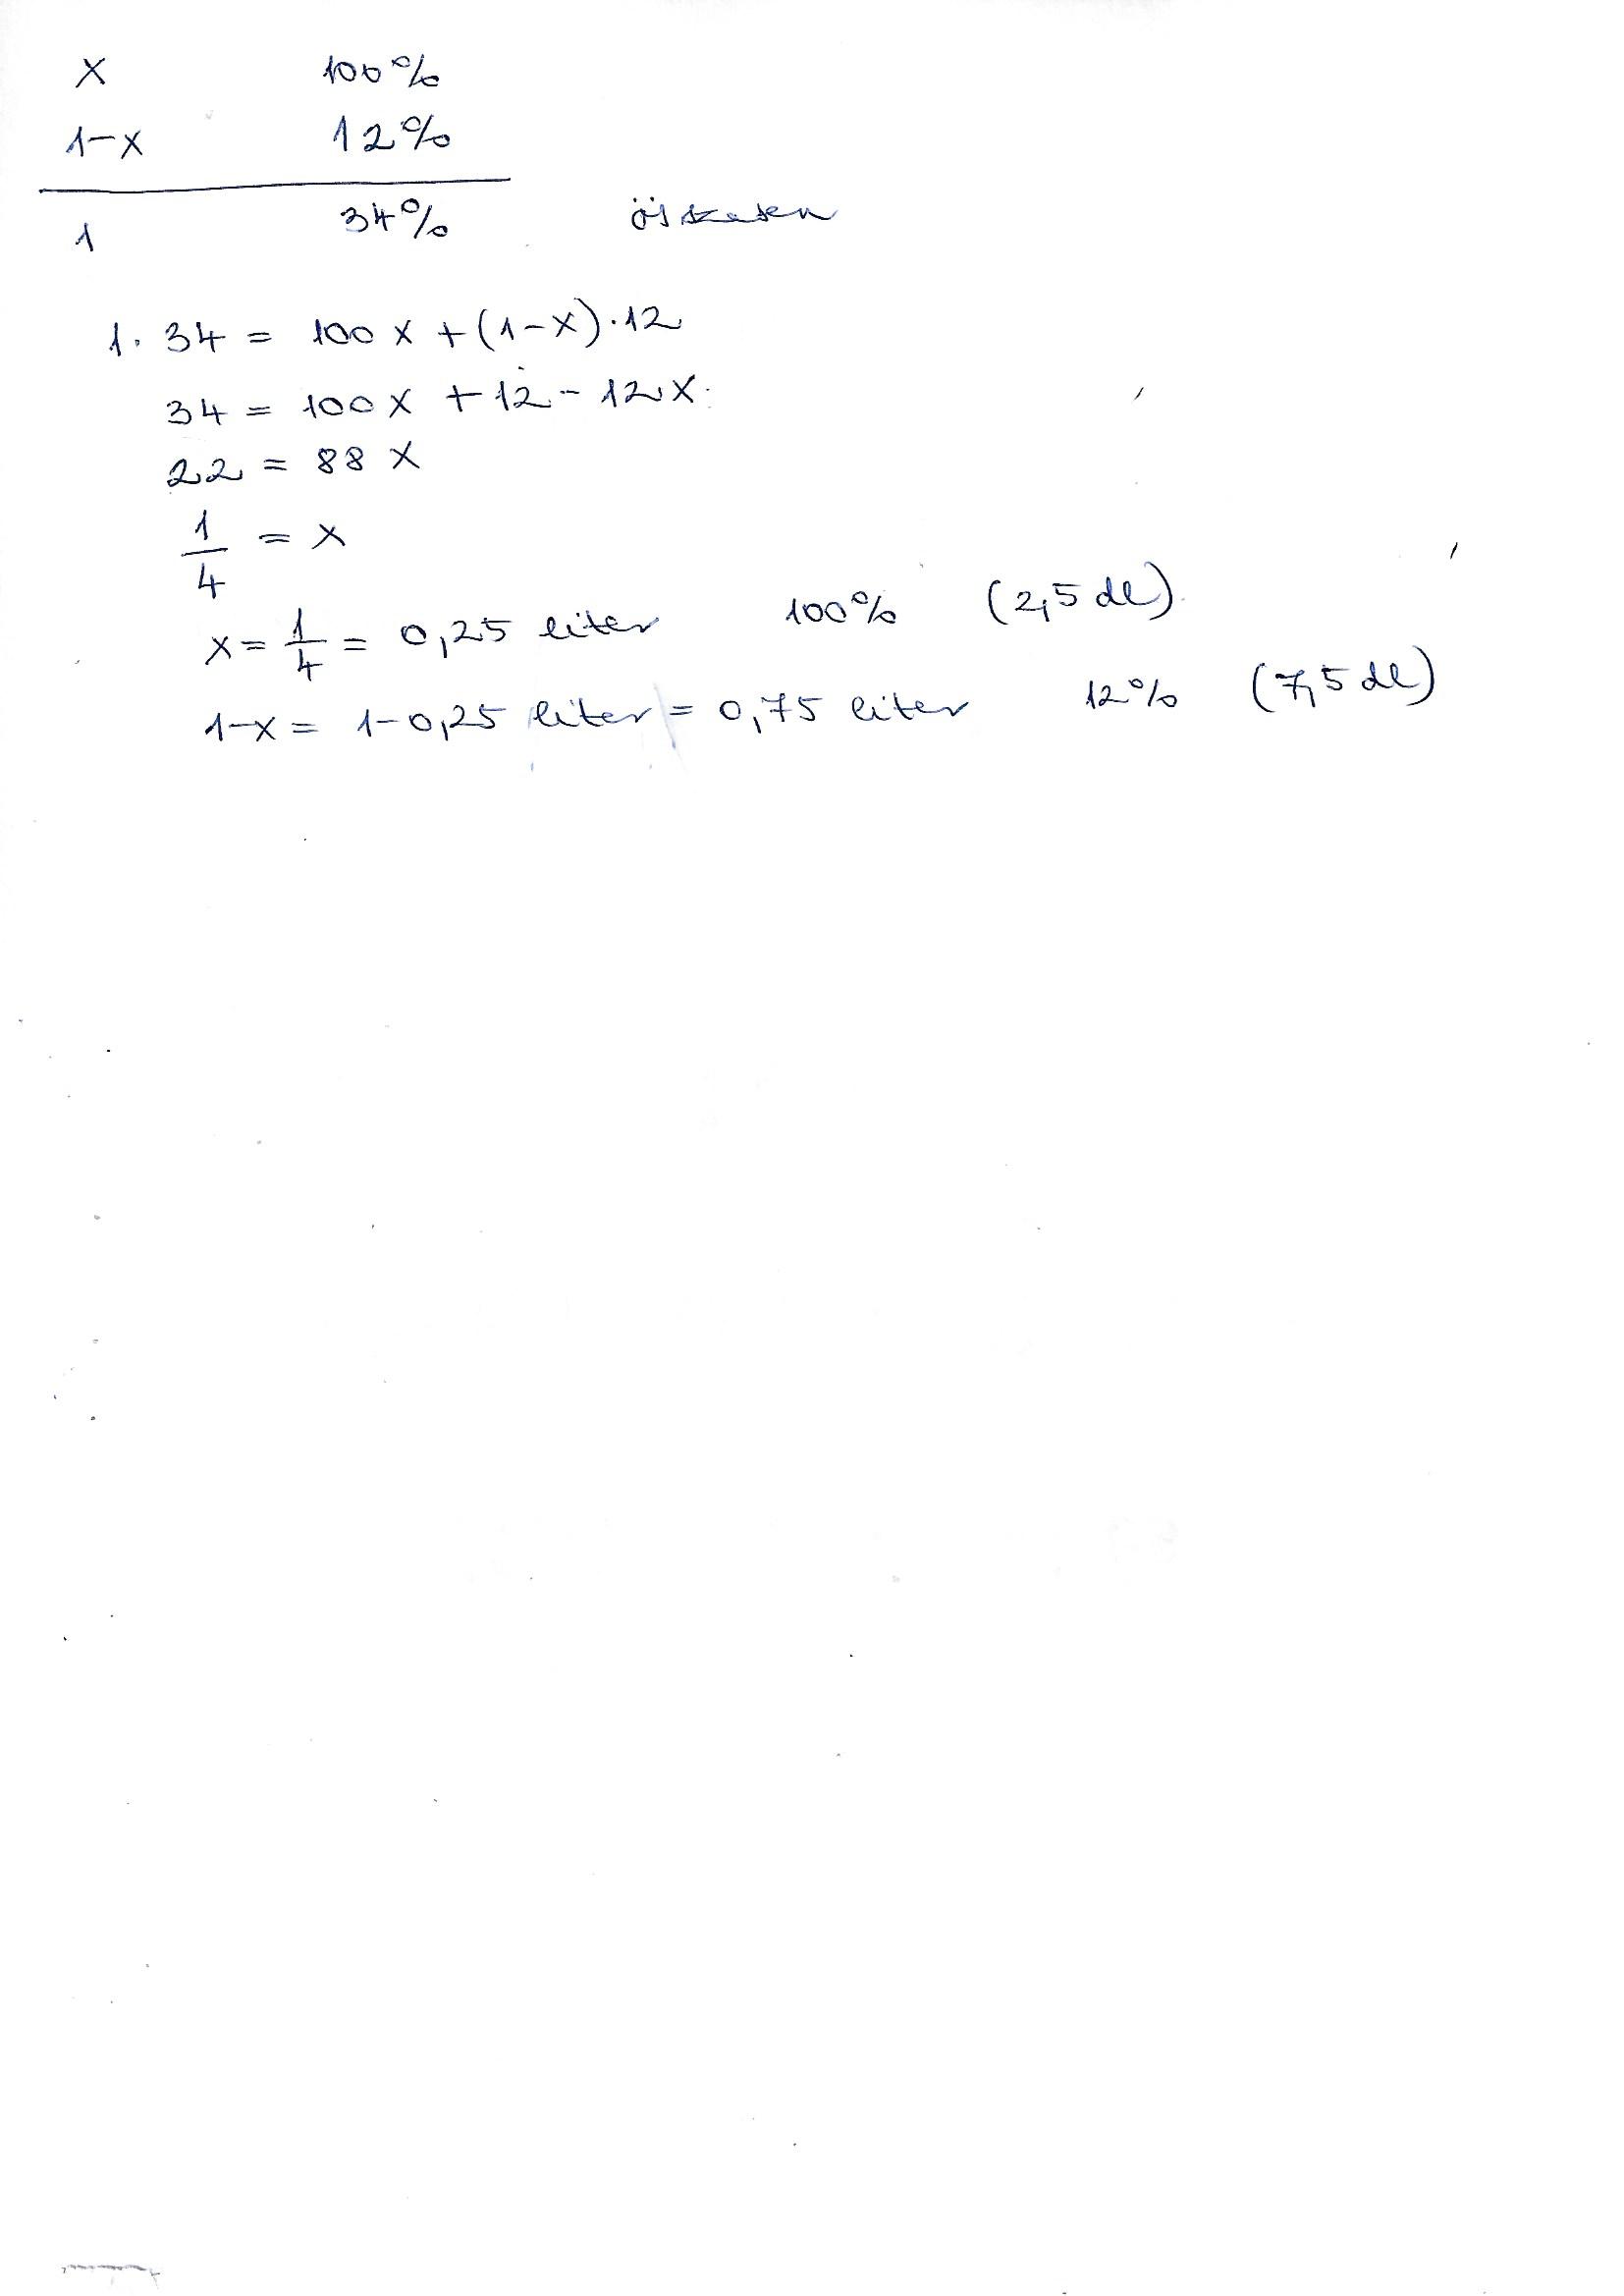 x 100%
1-x 12%
1 34% összesen
1. 34 = 100 x + (1-x)·12
34 = 100 x + 12 - 12 x
22 = 88 x
1/4 = x
x = 1/4 = 0,25 liter 100% (2,5 dl)
1-x = 1-0,25 liter = 0,75 liter 12% (7,5 dl)